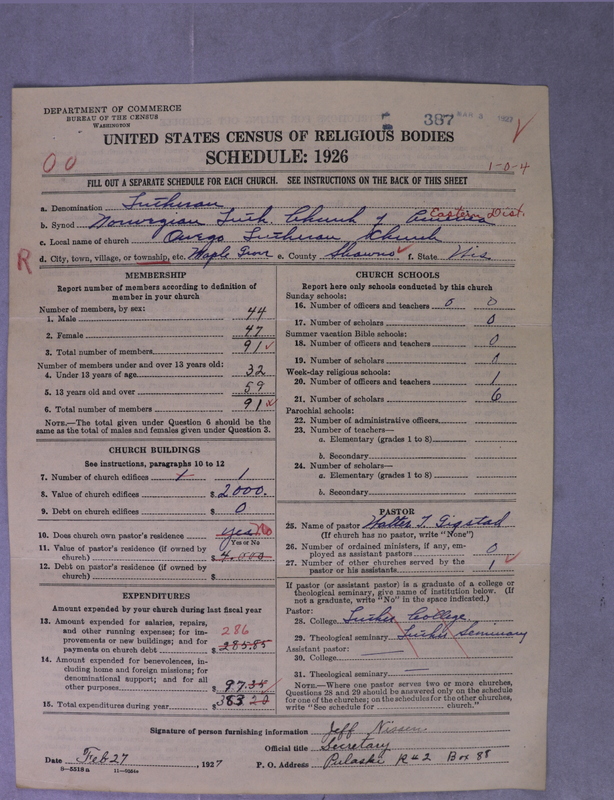 DEPARTMENT OF COMMERCE
BUREAU OF THE CENSUS
WASHINGTON
387
MAR 3 1927
UNITED STATES CENSUS OF RELIGIOUS BODIES
SCHEDULE: 1926
00
1-0-4
FILL OUT A SEPARATE SCHEDULE FOR EACH CHURCH. SEE INSTRUCTIONS ON THE BACK OF THIS SHEET
a. Denomination Lutheran
b. Synod Norwegian Luth. Church of America Eastern Dist.
c. Local name of church Owego Lutheran Church
R d. City, town, village, or township, etc. Maple Grove e. County Shawno f. State Wis.
MEMBERSHIP
Report number of members according to definition of
member in your church
Number of members, by sex:
1. Male 44
2. Female 47
3. Total number of members 91
Number of members under and over 13 years old:
4. Under 13 years of age 32
5. 13 years old and over 59
6. Total number of members 91
NOTE.—The total given under Question 6 should be
same as the total of males and females given under Question 3.
CHURCH BUILDINGS
See instructions, paragraphs 10 to 12
7. Number of church edifices 1 1
8. Value of church edifices $ 2000.
9. Debt on church edifices $ 0
10. Does church own pastor's residence yes No
Yes or No
11. Value of pastor's residence (if owned by
church) $ 4.000
12. Debt on pastor's residence (if owned by
church) $
EXPENDITURES
Amount expended by your church during last fiscal year
13. Amount expended for salaries, repairs,
and other running expenses; for im-
provements or new buildings; and for
payments on church debt $ 285.85
286
14. Amount expended for benevolences, in-
cluding home and foreign missions; for
denominational support; and for all
other purposes $ 97.34
15. Total expenditures during year $ 383 20
CHURCH SCHOOLS
Report here only schools conducted by this church
Sunday schools:
16. Number of officers and teachers 0 0
17. Number of scholars 0
Summer vacation Bible schools:
18. Number of officers and teachers 0
19. Number of scholars 0
Week-day religious schools:
20. Number of officers and teachers 1
21. Number of scholars 6
Parochial schools:
22. Number of administrative officers
23. Number of teachers—
a. Elementary (grades 1 to 8)
b. Secondary
24. Number of scholars—
a. Elementary (grades 1 to 8)
b. Secondary
PASTOR
25. Name of pastor Walter T. Gigstad
(If church has no pastor, write "None")
26. Number of ordained ministers, if any, em-
ployed as assistant pastors 0
27. Number of other churches served by the
pastor or his assistants 1
If pastor (or assistant pastor) is a graduate of a college or
theological seminary, give name of institution below. (If
not a graduate, write "No" in the space indicated.)
Pastor:
28. College Luther College
29. Theological seminary Luther Seminary
Assistant pastor:
30. College
31. Theological seminary
NOTE.—Where one pastor serves two or more churches,
Questions 28 and 29 should be answered only on the schedule
for one of the churches; on the schedules for the other churches,
write "See schedule for church."
Signature of person furnishing information Jeff Nissen
Official title Secretary
Date Feb 27, 1927 P. O. Address Pulaski R#2 Box 88
8-5518a 11-9564